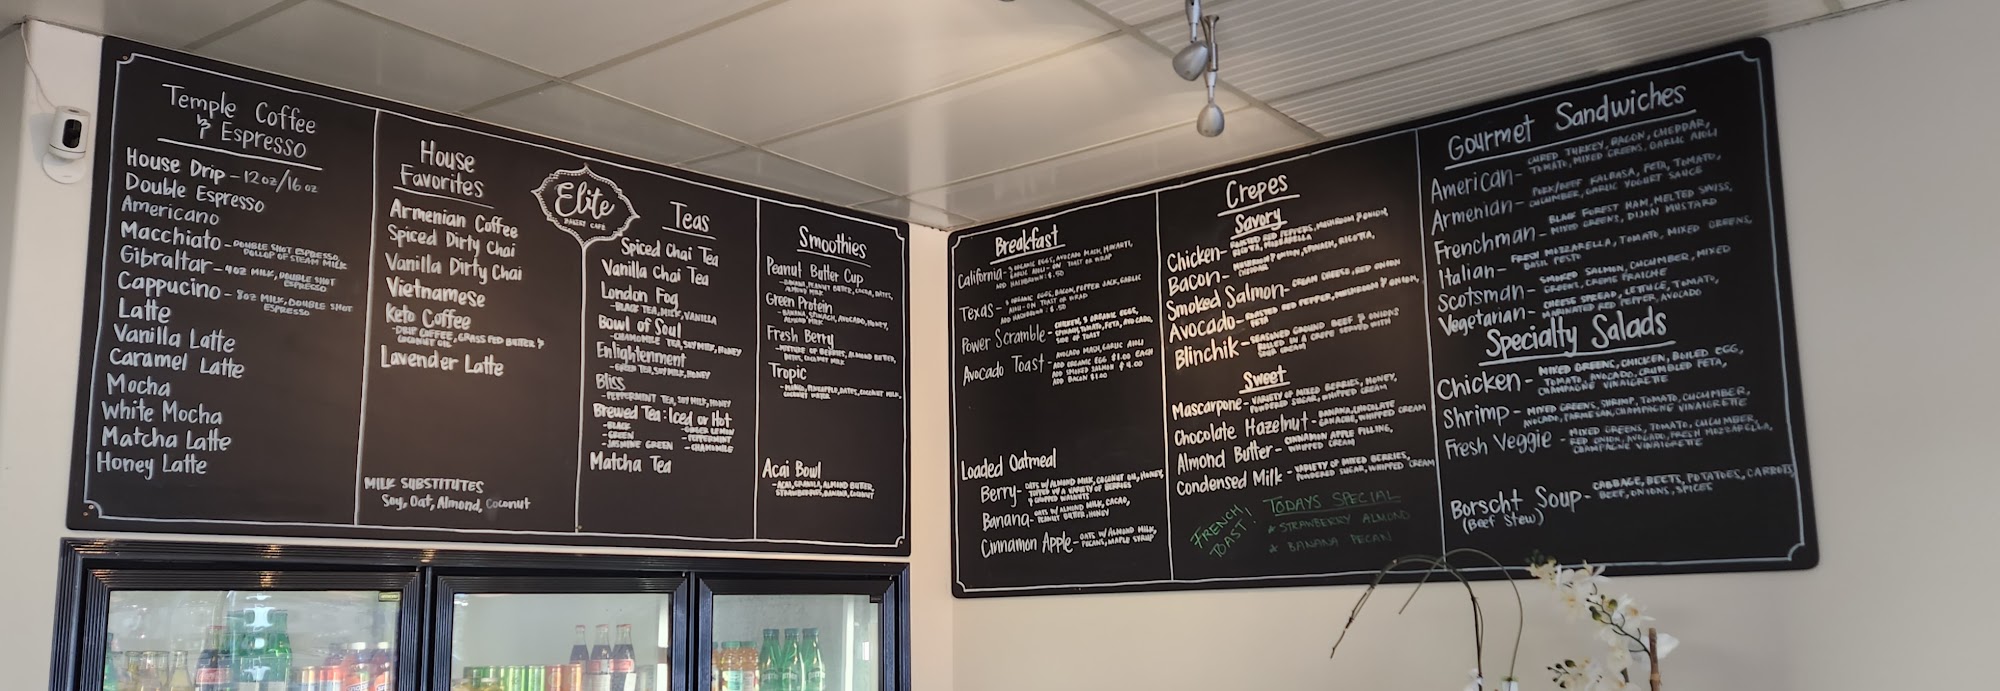 Temple Coffee
& Espresso
House Drip - 12oz/16oz
Double Espresso
Americano
Macchiato - DOUBLE SHOT ESPRESSO,
DOLLOP OF STEAM MILK
Gibraltar - 4OZ MILK, DOUBLE SHOT
ESPRESSO
Cappucino - 8OZ MILK, DOUBLE SHOT
ESPRESSO
Latte
Vanilla Latte
Caramel Latte
Mocha
White Mocha
Matcha Latte
Honey Latte
House
Favorites
Armenian Coffee
Spiced Dirty Chai
Vanilla Dirty Chai
Vietnamese
Keto Coffee
- DRIP COFFEE, GRASS FED BUTTER &
COCONUT OIL
Lavender Latte
MILK SUBSTITUTES
Soy, Oat, Almond, Coconut
Elite
BAKERY CAFE
Teas
Spiced Chai Tea
Vanilla Chai Tea
London Fog
- BLACK TEA, MILK, VANILLA
Bowl of Soul
- CHAMOMILE TEA, SOY MILK, HONEY
Enlightenment
- GREEN TEA, SOY MILK, HONEY
Bliss
- PEPPERMINT TEA, SOY MILK, HONEY
Brewed Tea: Iced or Hot
- BLACK - GINGER LEMON
- GREEN - PEPPERMINT
- JASMINE GREEN - CHAMOMILE
Matcha Tea
Smoothies
Peanut Butter Cup
- BANANA, PEANUT BUTTER, CACAO, DATES,
ALMOND MILK
Green Protein
- BANANA, SPINACH, AVOCADO, HONEY,
ALMOND MILK
Fresh Berry
- MIXTURE OF BERRIES, ALMOND BUTTER,
DATES, COCONUT MILK
Tropic
- MANGO, PINEAPPLE, DATES, COCONUT MILK,
COCONUT WATER
Acai Bowl
- ACAI, GRANOLA, ALMOND BUTTER,
STRAWBERRIES, BANANA, COCONUT
Breakfast
California - 3 ORGANIC EGGS, AVOCADO MASH, HAVARTI,
GARLIC AIOLI - ON TOAST OR WRAP
ADD HASHBROWN: $.50
Texas - 3 ORGANIC EGGS, BACON, PEPPER JACK, GARLIC
AIOLI - ON TOAST OR WRAP
ADD HASHBROWN: $.50
Power Scramble - CHICKEN, 3 ORGANIC EGGS,
SPINACH, TOMATO, FETA, AVOCADO,
SIDE OF TOAST
Avocado Toast - AVOCADO MASH, GARLIC AIOLI
ADD ORGANIC EGG $1.00 EACH
ADD SMOKED SALMON $4.00
ADD BACON $1.00
Loaded Oatmeal
Berry - OATS W/ ALMOND MILK, COCONUT OIL, HONEY,
TOPPED W/ A VARIETY OF BERRIES
& CHOPPED WALNUTS
Banana - OATS W/ ALMOND MILK, CACAO,
PEANUT BUTTER, HONEY
Cinnamon Apple - OATS W/ ALMOND MILK,
PECANS, MAPLE SYRUP
Crepes
Savory
Chicken - ROASTED RED PEPPERS, MUSHROOM & ONION,
RICOTTA, MOZZARELLA
Bacon - MUSHROOM & ONION, SPINACH, RICOTTA,
CHEDDAR
Smoked Salmon - CREAM CHEESE, RED ONION
Avocado - ROASTED RED PEPPER, MUSHROOM & ONION,
FETA
Blinchik - SEASONED GROUND BEEF & ONIONS
ROLLED IN A CREPE SERVED WITH
SOUR CREAM
Sweet
Mascarpone - VARIETY OF MIXED BERRIES, HONEY,
POWDERED SUGAR, WHIPPED CREAM
Chocolate Hazelnut - BANANA, CHOCOLATE
GANACHE, WHIPPED CREAM
Almond Butter - CINNAMON APPLE FILLING,
WHIPPED CREAM
Condensed Milk - VARIETY OF MIXED BERRIES,
POWDERED SUGAR, WHIPPED CREAM
FRENCH
TOAST!
TODAYS SPECIAL
* STRAWBERRY ALMOND
* BANANA PECAN
Gourmet Sandwiches
American - CURED TURKEY, BACON, CHEDDAR,
TOMATO, MIXED GREENS, GARLIC AIOLI
Armenian - PORK/BEEF KALBASA, FETA, TOMATO,
CUCUMBER, GARLIC YOGURT SAUCE
Frenchman - BLACK FOREST HAM, MELTED SWISS,
MIXED GREENS, DIJON MUSTARD
Italian - FRESH MOZZARELLA, TOMATO, MIXED GREENS,
BASIL PESTO
Scotsman - SMOKED SALMON, CUCUMBER, MIXED
GREENS, CREME FRAICHE
Vegetarian - CHEESE SPREAD, LETTUCE, TOMATO,
MARINATED RED PEPPER, AVOCADO
Specialty Salads
Chicken - MIXED GREENS, CHICKEN, BOILED EGG,
TOMATO, AVOCADO, CRUMBLED FETA,
CHAMPAGNE VINAIGRETTE
Shrimp - MIXED GREENS, SHRIMP, TOMATO, CUCUMBER,
AVOCADO, PARMESAN, CHAMPAGNE VINAIGRETTE
Fresh Veggie - MIXED GREENS, TOMATO, CUCUMBER,
RED ONION, AVOCADO, FRESH MOZZARELLA,
CHAMPAGNE VINAIGRETTE
Borscht Soup - CABBAGE, BEETS, POTATOES, CARROTS,
(Beef Stew) BEEF, ONIONS, SPICES